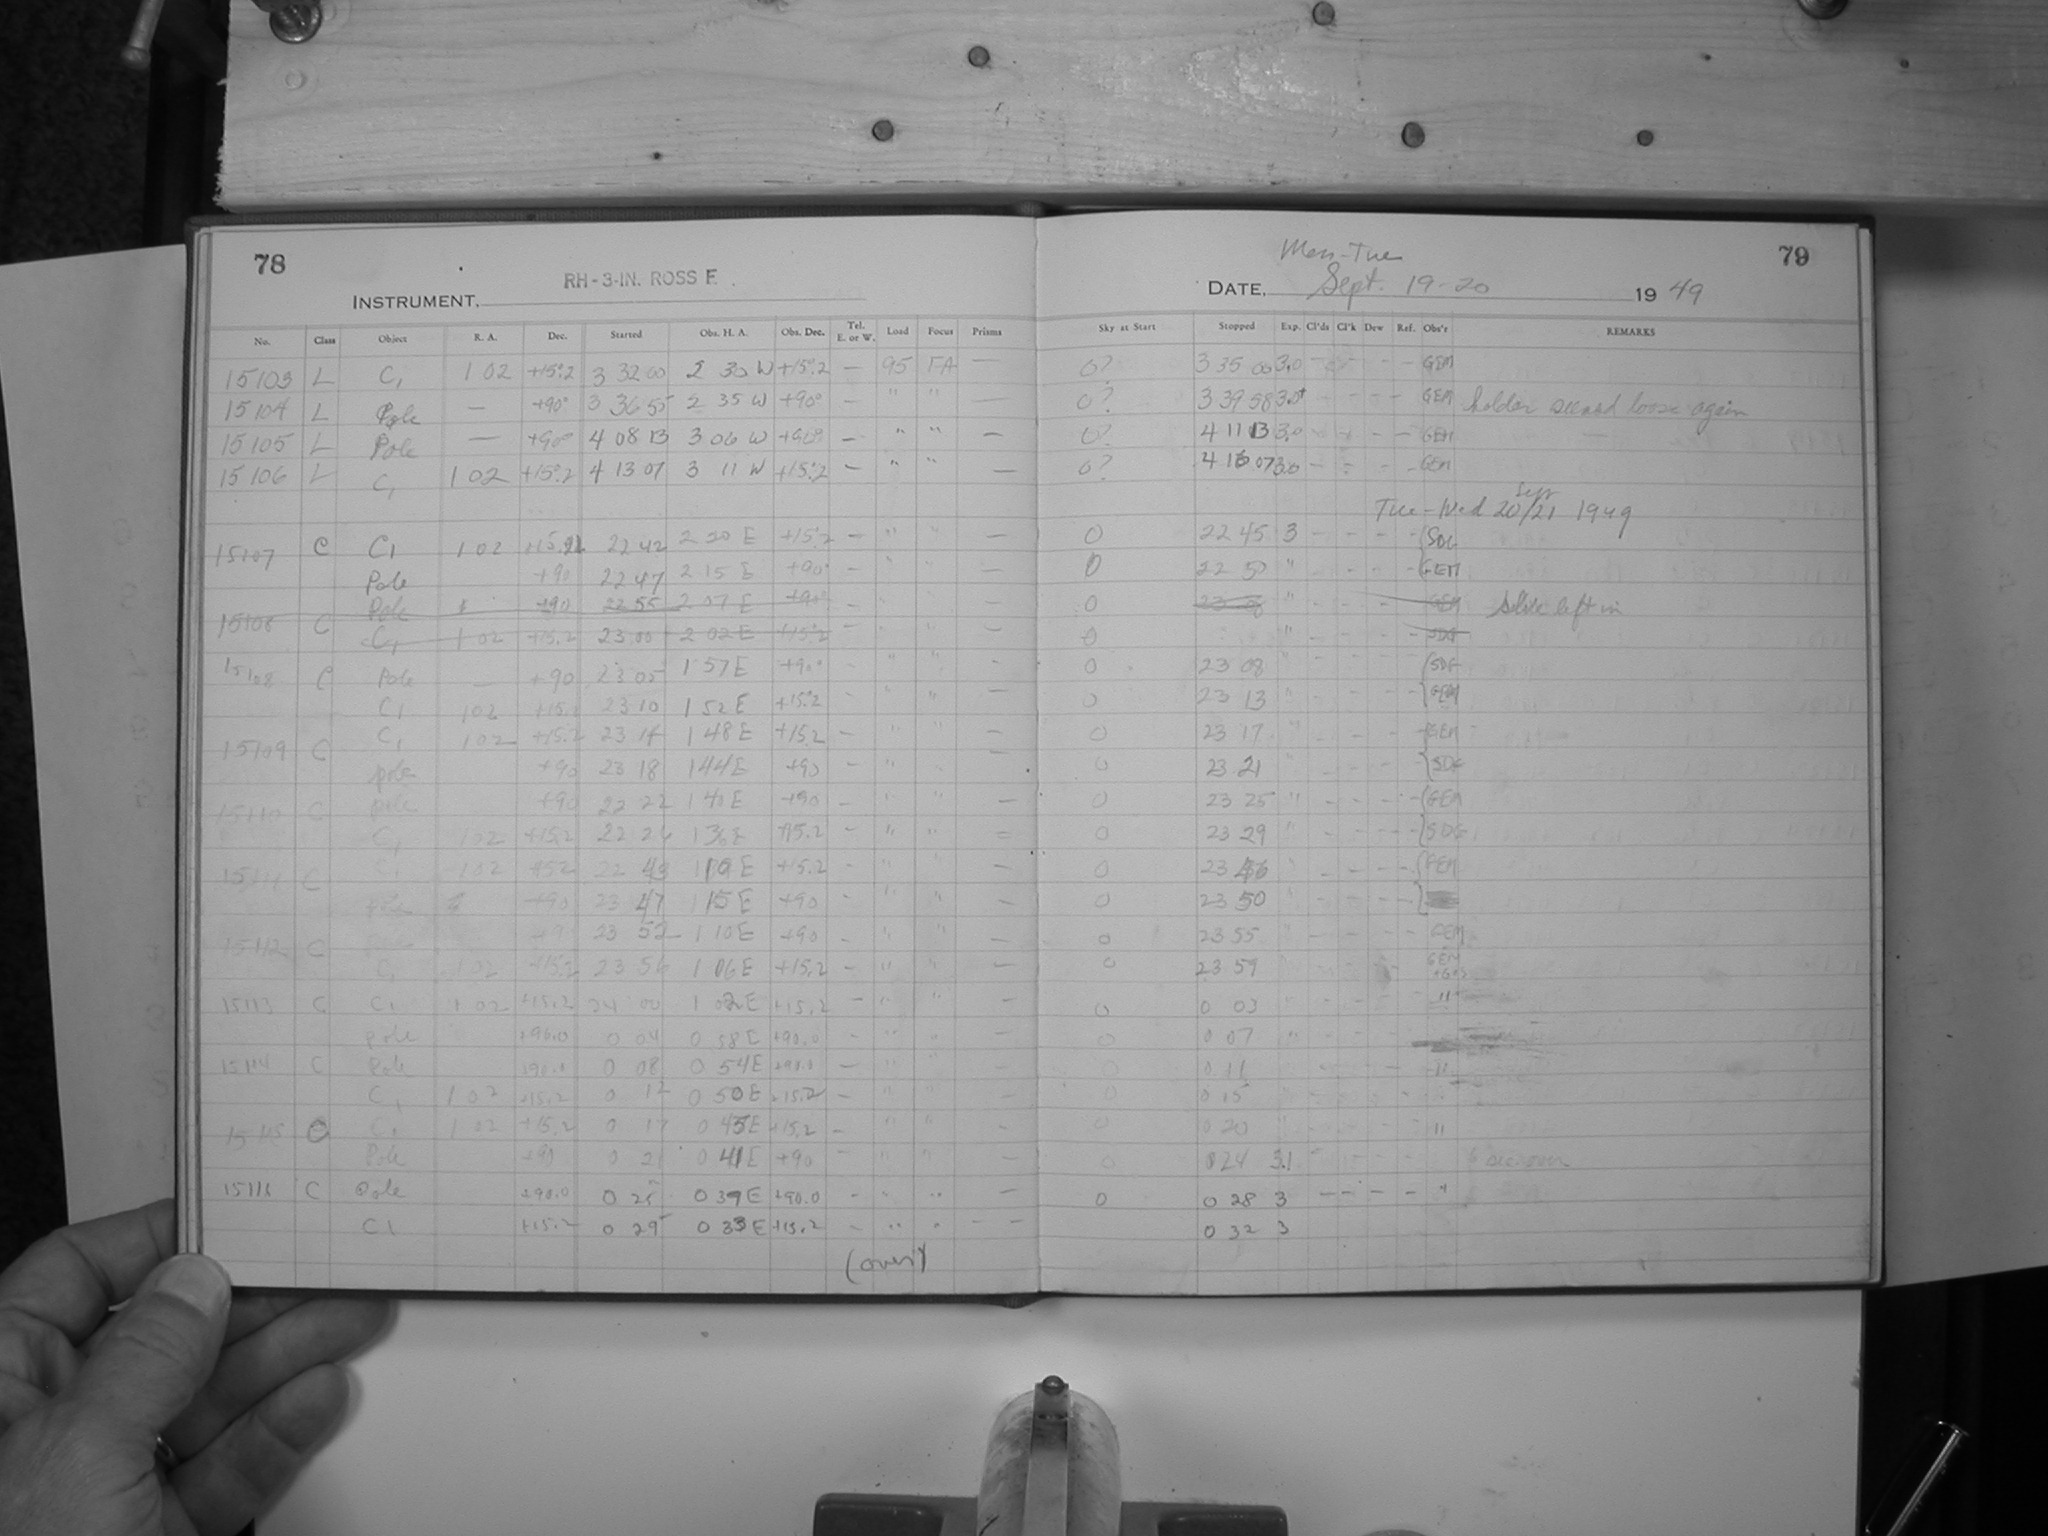 78
RH-3-IN. ROSS F.
INSTRUMENT.
No. Class Object R. A. Dec. Started Obs. H. A. Obs. Dec. Tel. E. or W. Load Focus Prisms
15103 L C1 1 02 +15°.2 3 32 00 2 30 W +15°.2 — 95 FA —
15104 L Pole — +90° 3 36 55 2 35 W +90° — " " —
15105 L Pole — +90° 4 08 13 3 06 W +90° — " " —
15106 L C1 1 02 +15°.2 4 13 07 3 11 W +15°.2 — " " —
15107 C C1 1 02 22 42 2 20 E +15°.2 — " " —
Pole +90 22 47 2 15 E +90° — " " —
15108 C Pole +90 22 55 2 07 E +90° - " " —
C1 1 02 +15.2 23 00 2 02 E +15°.2 — " " —
15108 C Pole — +90 23 05 1 57 E +90° - " " —
C1 1 02 23 10 1 52 E +15°.2 - " " —
15109 C C1 1 02 +15.2 23 14 1 48 E +15.2 — " " —
pole +90 23 18 1 44 E +90 — " " —
15110 C pole +90 22 22 1 40 E +90 — " " —
C1 1 02 +15.2 22 26 1 36 E +15.2 — " " —
15111 C C1 1 02 22 43 +15.2 - " " —
pole +90 23 47 1 15 E +90 - " " —
15112 C 23 52 1 10 E +90 - " " —
C1 1 02 +15.2 23 56 1 06 E +15.2 — " " —
15113 C C1 1 02 +15.2 24 00 1 02 E +15.2 — " " —
pole +90.0 0 04 0 58 E +90.0 — " " —
15114 C Pole +90.0 0 08 0 54 E +90.0 — " " —
C1 1 02 +15.2 0 12 0 50 E +15.2 — " " —
15115 C C1 1 02 +15.2 0 17 0 45 E +15.2 — " " —
Pole +90 0 21 0 41 E +90 — " " —
15116 C Pole +90.0 0 25 0 39 E +90.0 - " " —
C1 +15.2 0 29 0 33 E +15.2 - " " —
(over)
79
Mon-Tue
DATE. Sept. 19-20 19 49
Sky at Start Stopped Exp. Cl'ds Cl'k Dew Ref. Obs'r REMARKS
0? 3 35 00 3.0 - - - - GEM
0? 3 39 58 3.0+ - - - - GEM holder seemed loose again
0? 4 11 13 3.0 - - - - GEM
0? 4 16 07 3.0 - - - - GEM
Sept
Tue-Wed 20/21 1949
0 22 45 3 - - - -
0 22 50 " - - - - GEM
0 " - - - GEM left in
0 " - - - -
0 23 08 " - - - -
0 23 13 " - - - - GEM
0 23 17 " - - - - GEM
0 23 21 " - - - -
0 23 25 " - - - - GEM
0 23 29 " - - - -
0 23 46 " - - - - GEM
0 23 50 " - - - -
0 23 55 " - - - - GEM
0 23 59 " - - - GEM
0 0 03 " - - - - "
0 0 07 " - - - -
0 0 11 " - - - - "
0 0 15 " - - - -
0 0 20 " - - - - "
0 0 24 3.1 - - - - 6 sec. over
0 0 28 3 - - - - "
0 32 3